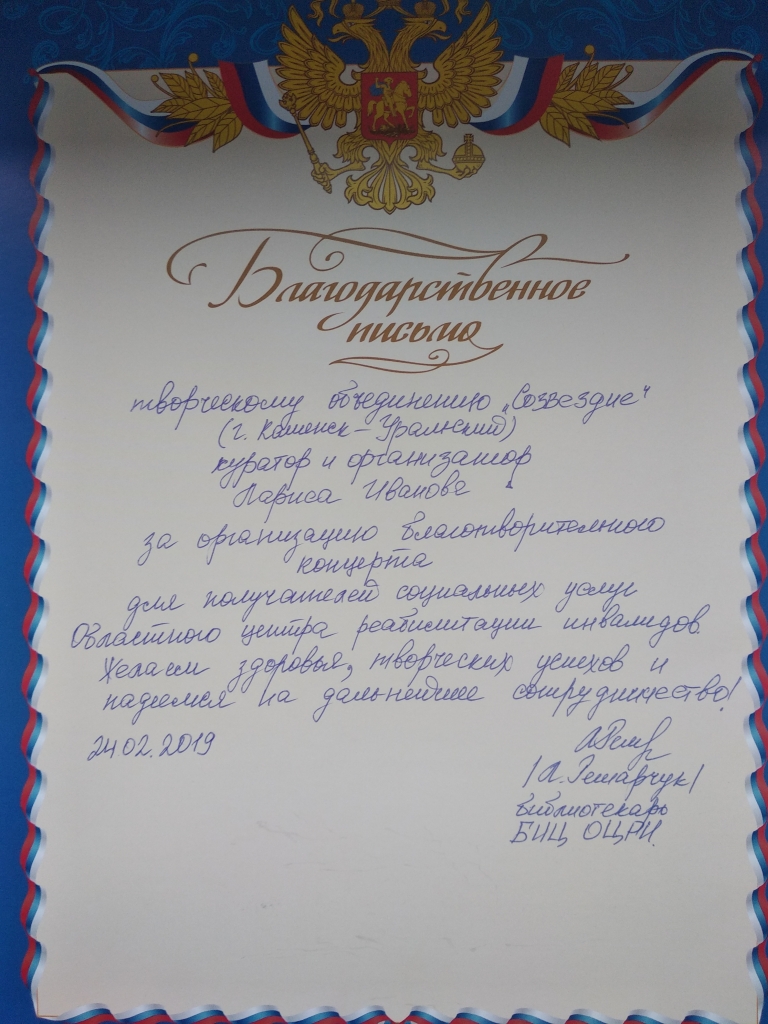 Благодарственное
письмо
творческому объединению „Созвездие"
(г. Каменск-Уральский)
куратор и организатор
Лариса Иванова
за организацию благотворительного
концерта
для получателей социальных услуг
Областного центра реабилитации инвалидов.
Желаем здоровья, творческих успехов и
надеемся на дальнейшее сотрудничество!
24.02.2019
библиотекарь
БИЦ ОЦРИ.